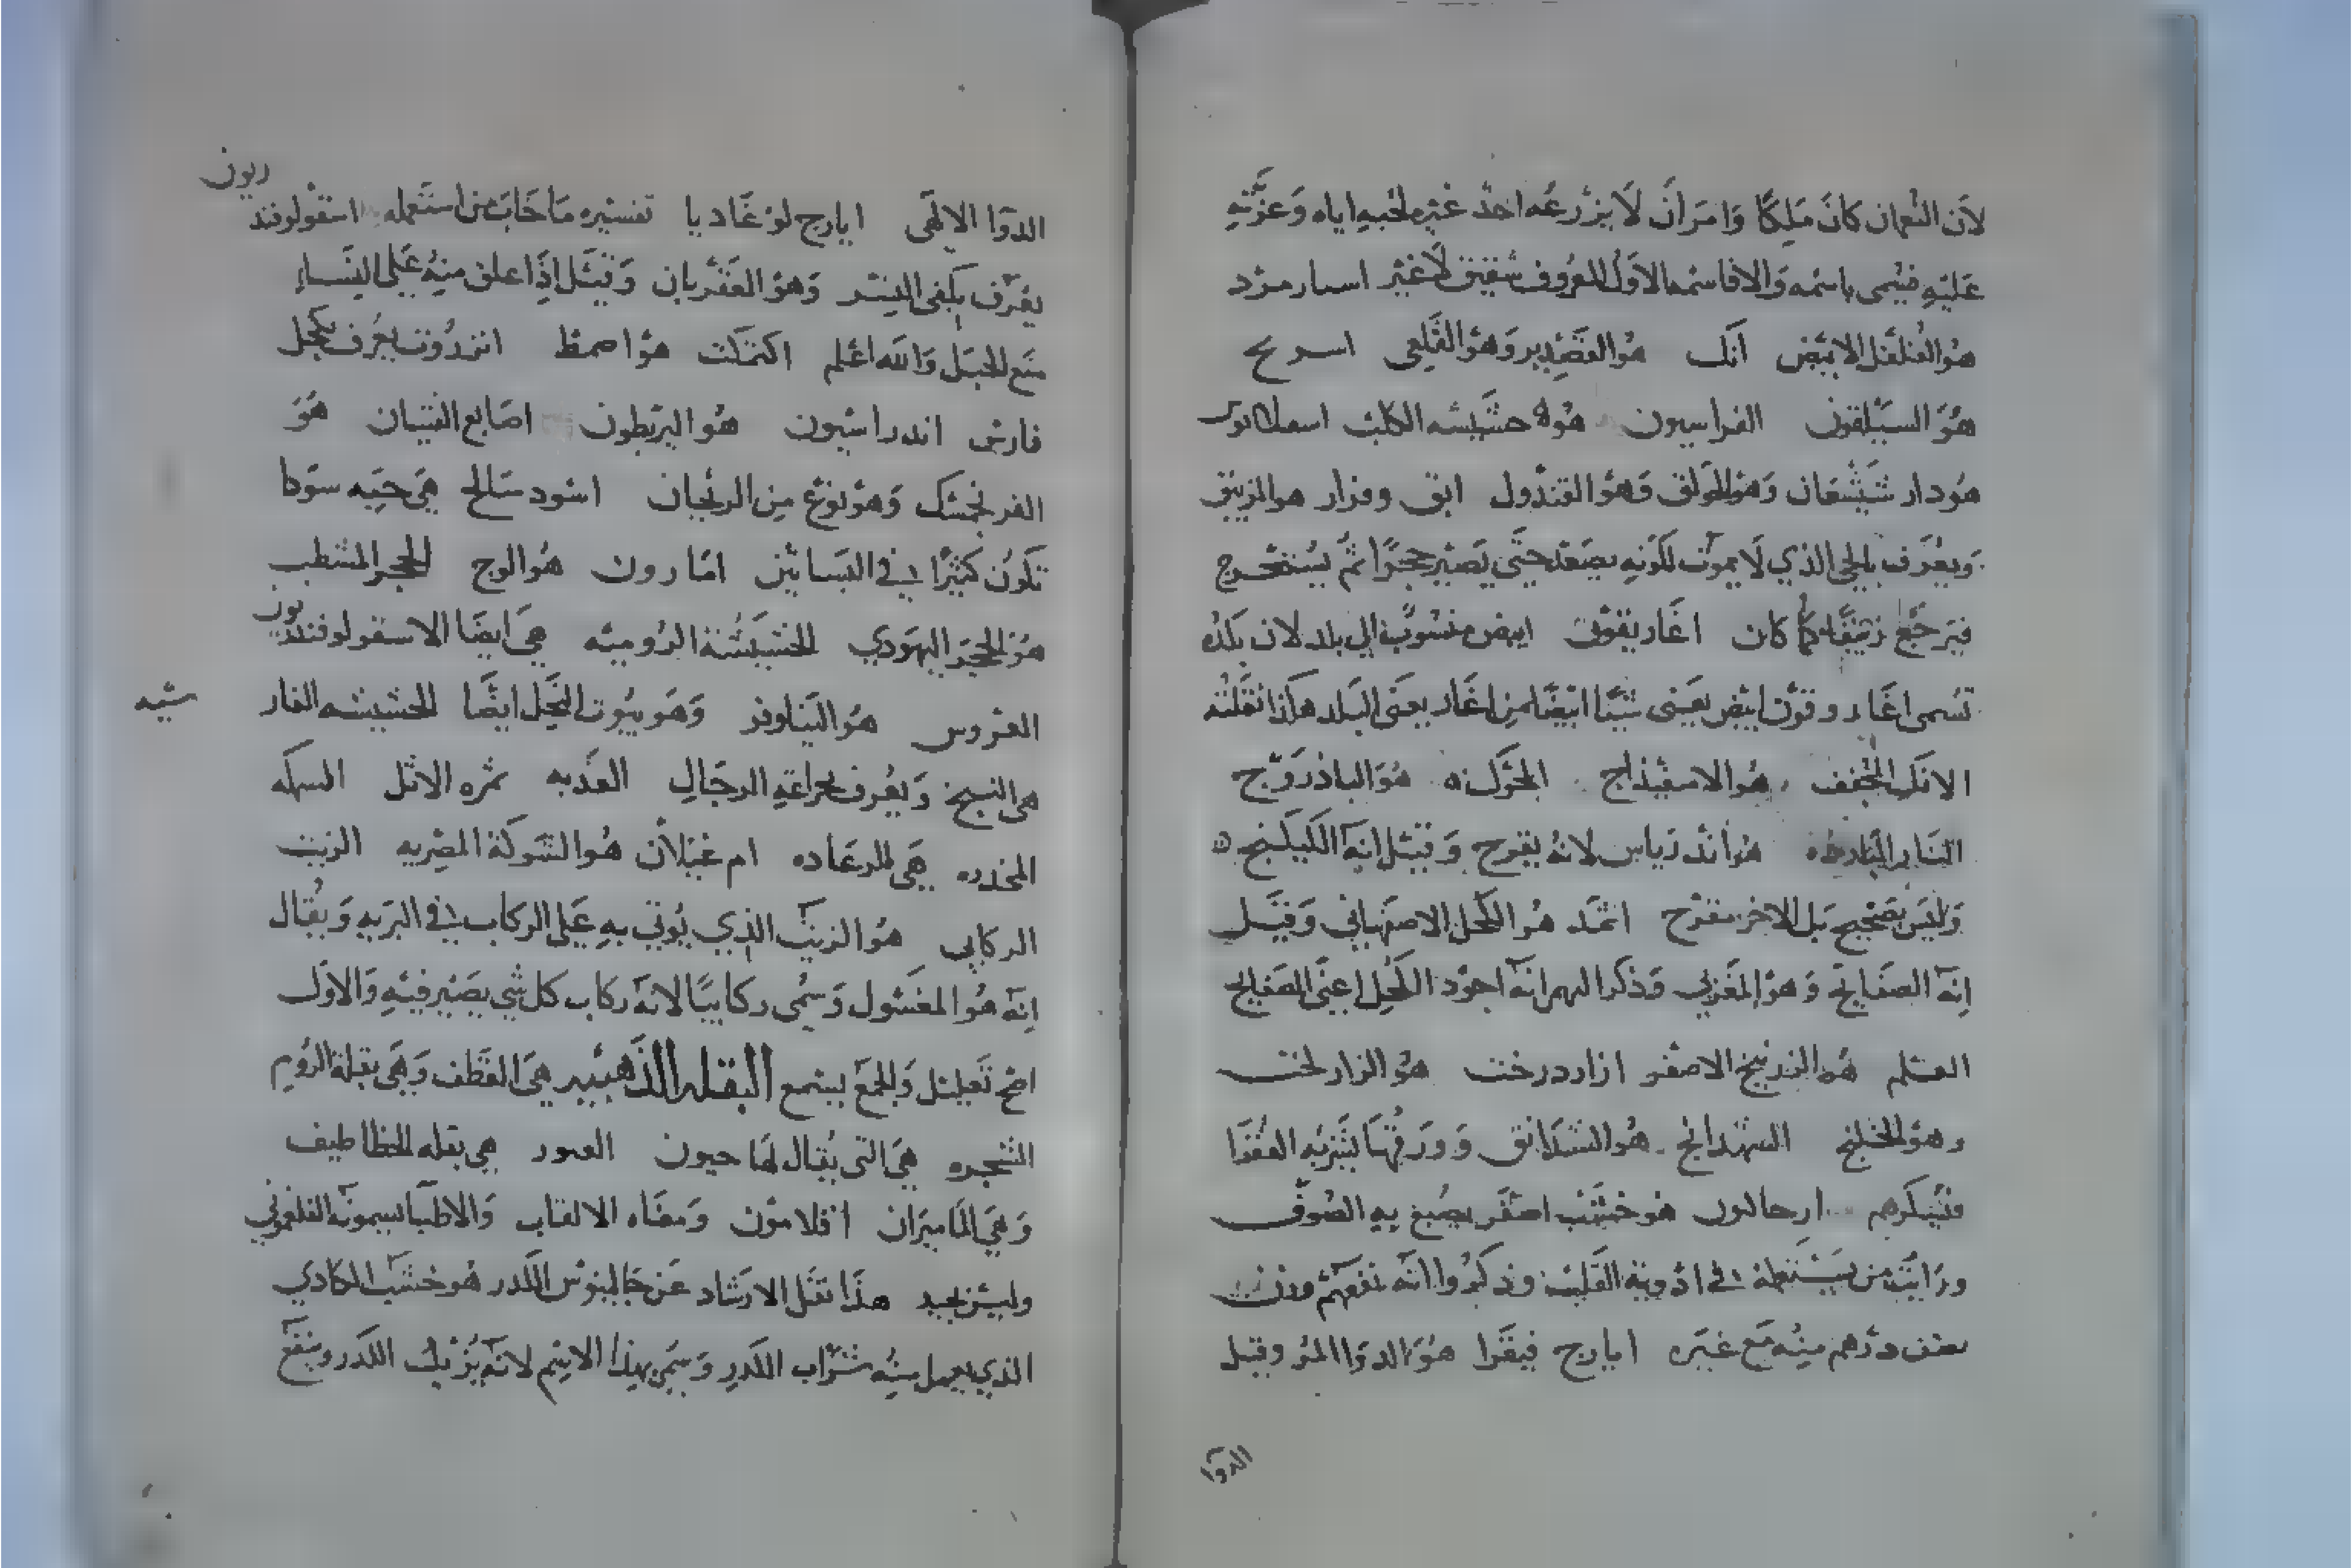 لأن النعمان كان ملكًا وامر أن لا يزرعه احد غيره لحبه اياه وعزته
عليه فسُمى باسمه والا فاسمه الاول المعروف شقيق لا غير اسـار مرد
هو الفلفل الابيض آنك هو القصدير وهو القلعى اسريج
هو السيلقون الفراسيون هو حشيشه الكلب
هو دار شيشعان وهو الجولق وهو القندول ابق وفرار هو الزيبق
ويعرف بالحى الذي لا يموت لكونه يصعد حتى يصير حجرًا ثم يستخرج
فيرجع زيبقا كما كان اغاريقون ابيض منسوب الى بلد لان بلده
تسمى اغار وقون ابيض يعنى شيا ابيضا من اغار يعنى البلد هكذا نقلته
الانك المخفف هو الاسفيذاج الحوك هو الباذروج
النار الباردة هو اند زياس لانه يقرح وقيل انه الكبيكنج
وليس بصحيح بل الاخر مقرح اثمد هو الكحل الاصبهاني وقيل
انه الصفايح وهو المغربي وذكر انه اجود الكحل اعنى الصفايح
العلم هو الزرنيخ الاصفر ازاد درخت هو الزار لخت
وهو الخلنج الشهدانج هو الشدانق وورقها يشربه الفقرا
فيسكرهم ارجالون هو خشب اصفر يصبغ به الصوف
ورايت من يستعمله في ادوية القلب وذكروا انه نفعهم وزن
درهم منه مع غيره ايارج فيقرا هو الدوا المر وقيل
الدوا
الدوا الالهى ايارج لوغاديا تفسيره ما خاب من استعمله اسقولوفند
ريون
يعرف بكفى النسر وهو العقربان وقيل اذا علق منه على النساء
منع الحبل والله اعلم اكتمكت هو انزروت يعرف بكحل
فارس اندراسيون هو البربطون اصابع الفتيان هو
الفرنجمشك وهو نوع من الريحان اسود سالح هي حيه سودا
تكون كثيرًا في البساتين امارون هو الوج الحجر المشطب
هو الحجر اليهودي الحشيشة الروميه هي ايضا الاسقولوفندريون
العروس هو النيلوفر وهو بيوت النحل ايضًا الحشيشه الفار
شيه
هى البنج ويعرف العذبه ثمره الاثل السمكه
المخدره هى الرعاده ام غيلان هو الشوكة المصريه الزيت
الركابي هو الزيت الذي يوتي به على الركاب في البريه ويقال
انه هو المغسول وسمى ركابيًا لانه ركاب كل شي يصير فيه والاول
اصح تعليل والجمع يسمع البقله الذهبيه هى القطف وهى بقلة الروم
الشجره هى التى يقال لها حيون العور هى بقله الخطاطيف
وهى الماميران افلامون ومعناه الالقاب والاطبا يسمونه الفلغموني
وليس بجيد هذا نقل الارشاد عن جالينوس الكدر هو خشب الكادي
الذي يعمل منه شراب الكدر وسمى بهذا الاسم لانه يزيل الكدر وينفع